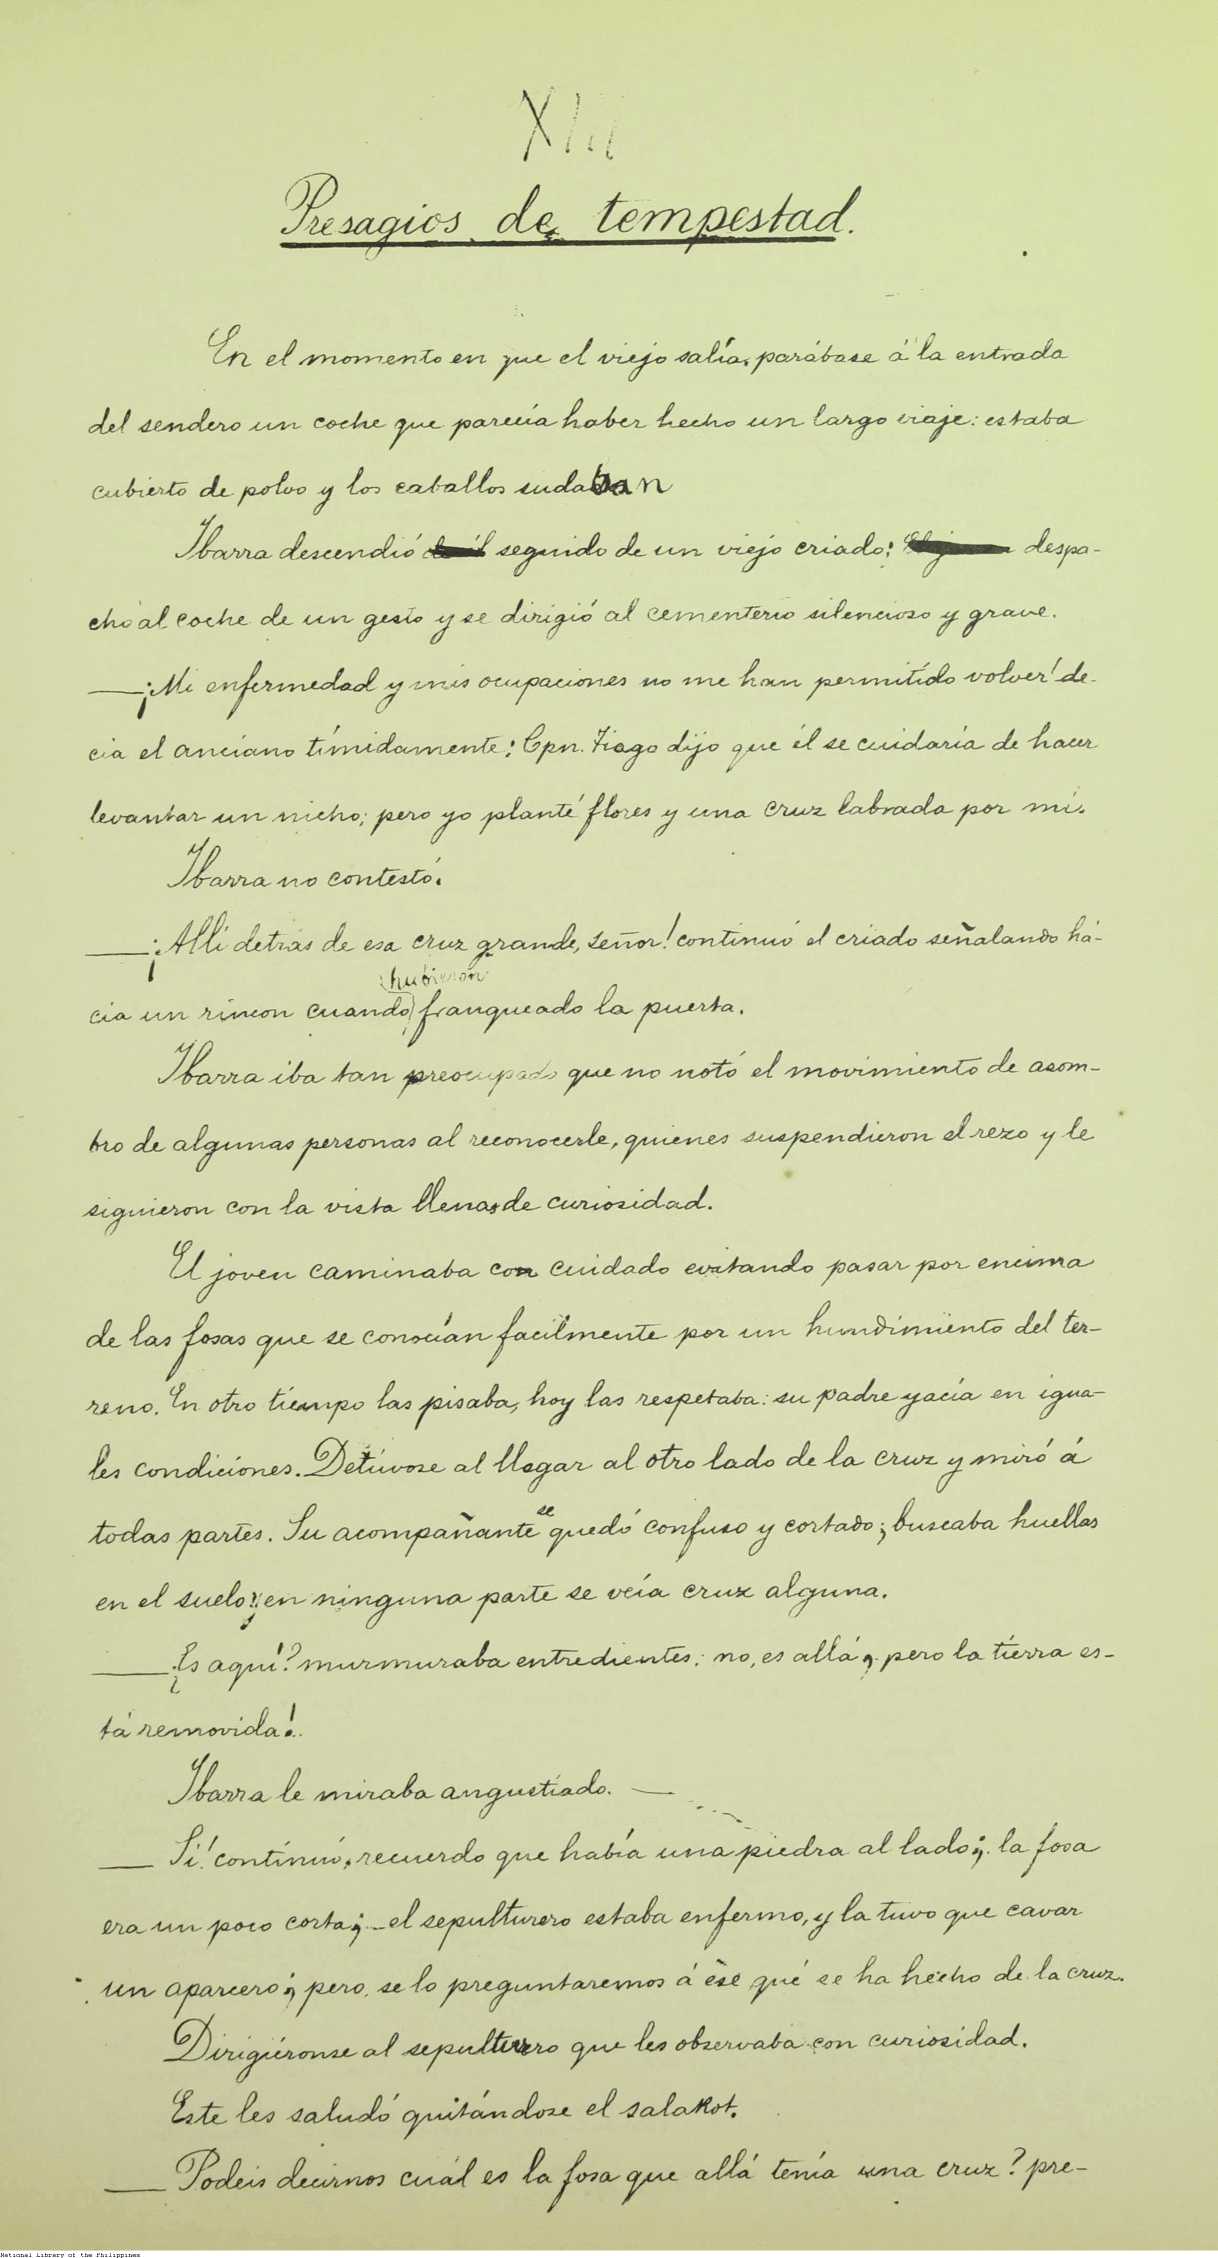 XIII
Presagios de tempestad.
En el momento en que el viejo salía, parábase á la entrada
del sendero un coche que parecía haber hecho un largo viaje: estaba
cubierto de polvo y los caballos sudaban
Ibarra descendió seguido de un viejo criado; despa-
chó al coche de un gesto y se dirigió al cementerio silencioso y grave.
—¡Mi enfermedad y mis ocupaciones no me han permitido volver! de-
cía el anciano tímidamente; Cpn. Tiago dijo que él se cuidaría de hacer
levantar un nicho; pero yo planté flores y una cruz labrada por mí.
Ibarra no contestó.
—¡Allí detrás de esa cruz grande, señor! continuó el criado señalando há-
hubieron
cia un rincon cuando franqueado la puerta.
Ibarra iba tan preocupado que no notó el movimiento de asom-
bro de algunas personas al reconocerle, quienes suspendieron el rezo y le
siguieron con la vista llenas de curiosidad.
El joven caminaba con cuidado evitando pasar por encima
de las fosas que se conocían facilmente por un hundimiento del ter-
reno. En otro tiempo las pisaba, hoy las respetaba: su padre yacía en igua-
les condiciones. Detúvose al llegar al otro lado de la cruz y miró á
todas partes. Su acompañante se quedó confuso y cortado; buscaba huellas
en el suelo; en ninguna parte se veía cruz alguna.
—¿Es aquí? murmuraba entredientes; no, es allá, pero la tierra es-
tá removida!
Ibarra le miraba angustiado. —
— Sí! continuó, recuerdo que había una piedra al lado; la fosa
era un poco corta; el sepulturero estaba enfermo, y la tuvo que cavar
un aparcero; pero se lo preguntaremos á ese qué se ha hecho de la cruz.
Dirigiéronse al sepulturero que les observaba con curiosidad.
Este les saludó quitándose el salakot.
— Podeis decirnos cuál es la fosa que allá tenía una cruz? pre-
National Library of the Philippines